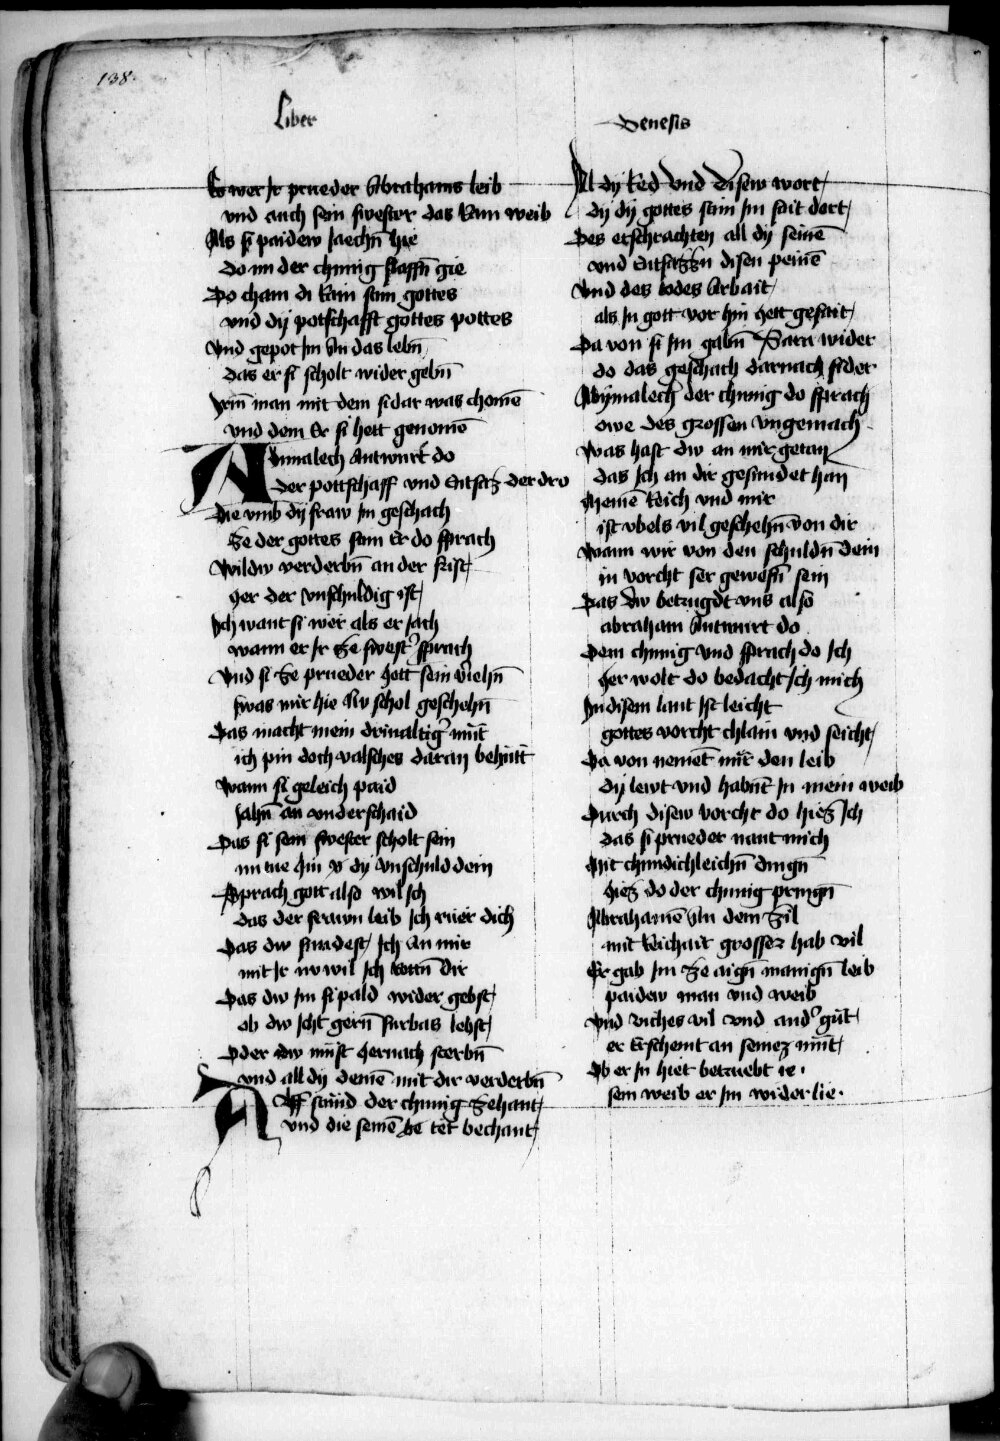 138
Liber
Genesis
Er wer Ir prueder Abrahams leib
vnd auch sein swester das Rain weib
Als si paidew Iaechn̄ hie
do nu der chunig slaffn̄ gie
Do cham di Rain stim gottes
vnd dy potschafft gottes pottes
Vnd gepot Im An das lebn̄
das er si scholt wider gebn̄
Irm̄ man mit dem si dar was chomē
vnd dem Er si hett genomē
Abimalech Antwurt do
der pottschaff vnd Entsaz der dro
Die vmb dy fraw Im geschach
Ze der gottes stim Er do sprach
Wildw verderbn̄ an der frist
her der vnschuldig ist
Ich want si wer als er Iach
wann er Ir Ze swest' sprach
Vnd si Ze prueder hett sein veriehn̄
swas mir hie Nv schol geschehn̄
Das macht mein ainualtig' mūt
ich pin doch valsches daran behūtt
Wann si geleich paid
Iahn̄ an vnderschaid
Das si sein swester scholt sein
nu tue hin dy vnschuld dein
Sprach gott also wil Ich
das der frawn leib Ich ruer dich
Das dw sundest Ich An mir
mit Ir nv wil Ich ratn̄ dir
Das dw Im si pald wider gebst
ob dw Icht gern̄ furbas lebst
Oder dw mūst hernach sterbn̄
vnd all dy deinē mit dir verderbn̄
Auff stuend der chunig Zehant
vnd die seinē he tet bechant
All dy Red vnd disew wort
dy dy gottes stim Im sait dort
Des erschrachten all dy seinē
vnd Entsazzn disen peinē
Vnd des todes Arbait
als In gott vor hin hett gesait
Da von si Im gabn̄ Sara wider
do das geschach darnach sider
Abymalech der chunig do sprach
owe des grossen vngemach
Was hast dw an mir getan
das Ich an dir gesundet han
Meinē Reich vnd mir
ist vbels vil geschehn̄ von dir
Wann wir von den schuldn̄ dein
in vorcht ser gewesn̄ sein
Das dw betrugdt vns also
abraham Antwurt do
Dem chunig vnd sprach do Ich
her wolt do bedacht Ich mich
In disem lant Ist leicht
gottes vorcht chlain vnd seicht
Da von nemēt mir den leib
dy lewt vnd habnt̄ In mein weib
Durch disew vorcht do hiez Ich
das si prueder nant mich
Mit chundichleichn̄ dingn̄
hiez do der chunig pringn̄
Abrahamē An dem Zil
mit Reichait grosser hab vil
Er gab Im Ze aign̄ manign̄ leib
paidew man vnd weib
Vnd viches vil vnd and' gūt
er Erscheint an seinez mūt
Ob er In hiet betruebt ie.
sein weib er Im wider lie.